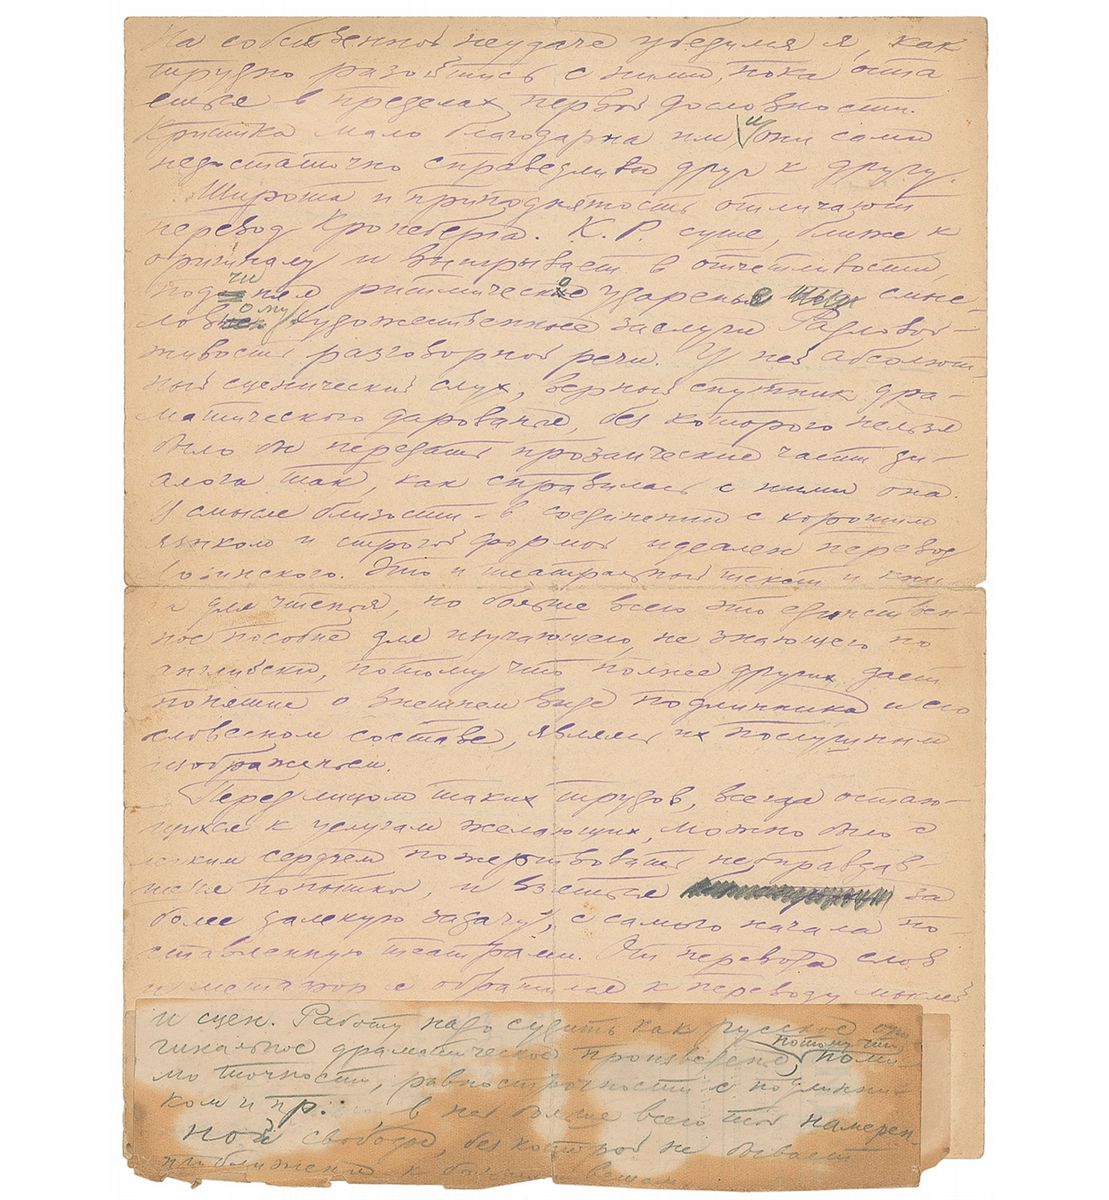 На собственной неудаче убедился я, как
трудно разойтись с ними, пока оста-
ешься в пределах первой дословности.
Критика мало благодарна им и они сами
недостаточно справедливы друг к другу.
Широта и приподнятость отличают
перевод Кронеберга. К. Р. суше, ближе к
оригиналу и выигрывает в отчетливости,
подчиняя ритмическое ударенье смыс
ловому. Художественные заслуги Радловой –
живость разговорной речи. У ней абсолют-
ный сценический слух, верный спутник дра-
матического дарованья, без которого нельзя
было бы передать прозаические части ди-
алога так, как справилась с ними она.
В смысле близости – в соединении с хорошим
языком и строгой формой идеален перевод
Лозинского. Это и театральный текст и кни
га для чтенья, но больше всего это единствен-
ное пособие для изучающего, не знающего по
английски, потому что полнее других дает
понятие о внешнем виде подлинника и его
словесном составе, являясь их послушным
изображеньем.
Перед лицом таких трудов, всегда остаю-
щихся к услугам желающих, можно было с
легким сердцем пожертвовать неоправдав-
шейся попыткой, и взяться за
более далекую задачу, с самого начала по-
ставленную театрами. От перевода слов
и метафор я обратился к переводу мыслей
и сцен. Работу надо судить как русское ори-
гинальное драматическое произведение, потому что поми
мо точности, равнострочности с подлинни-
ком и пр. в ней больше всего той намерен-
ной свободы, без которой не бывает
приближения к